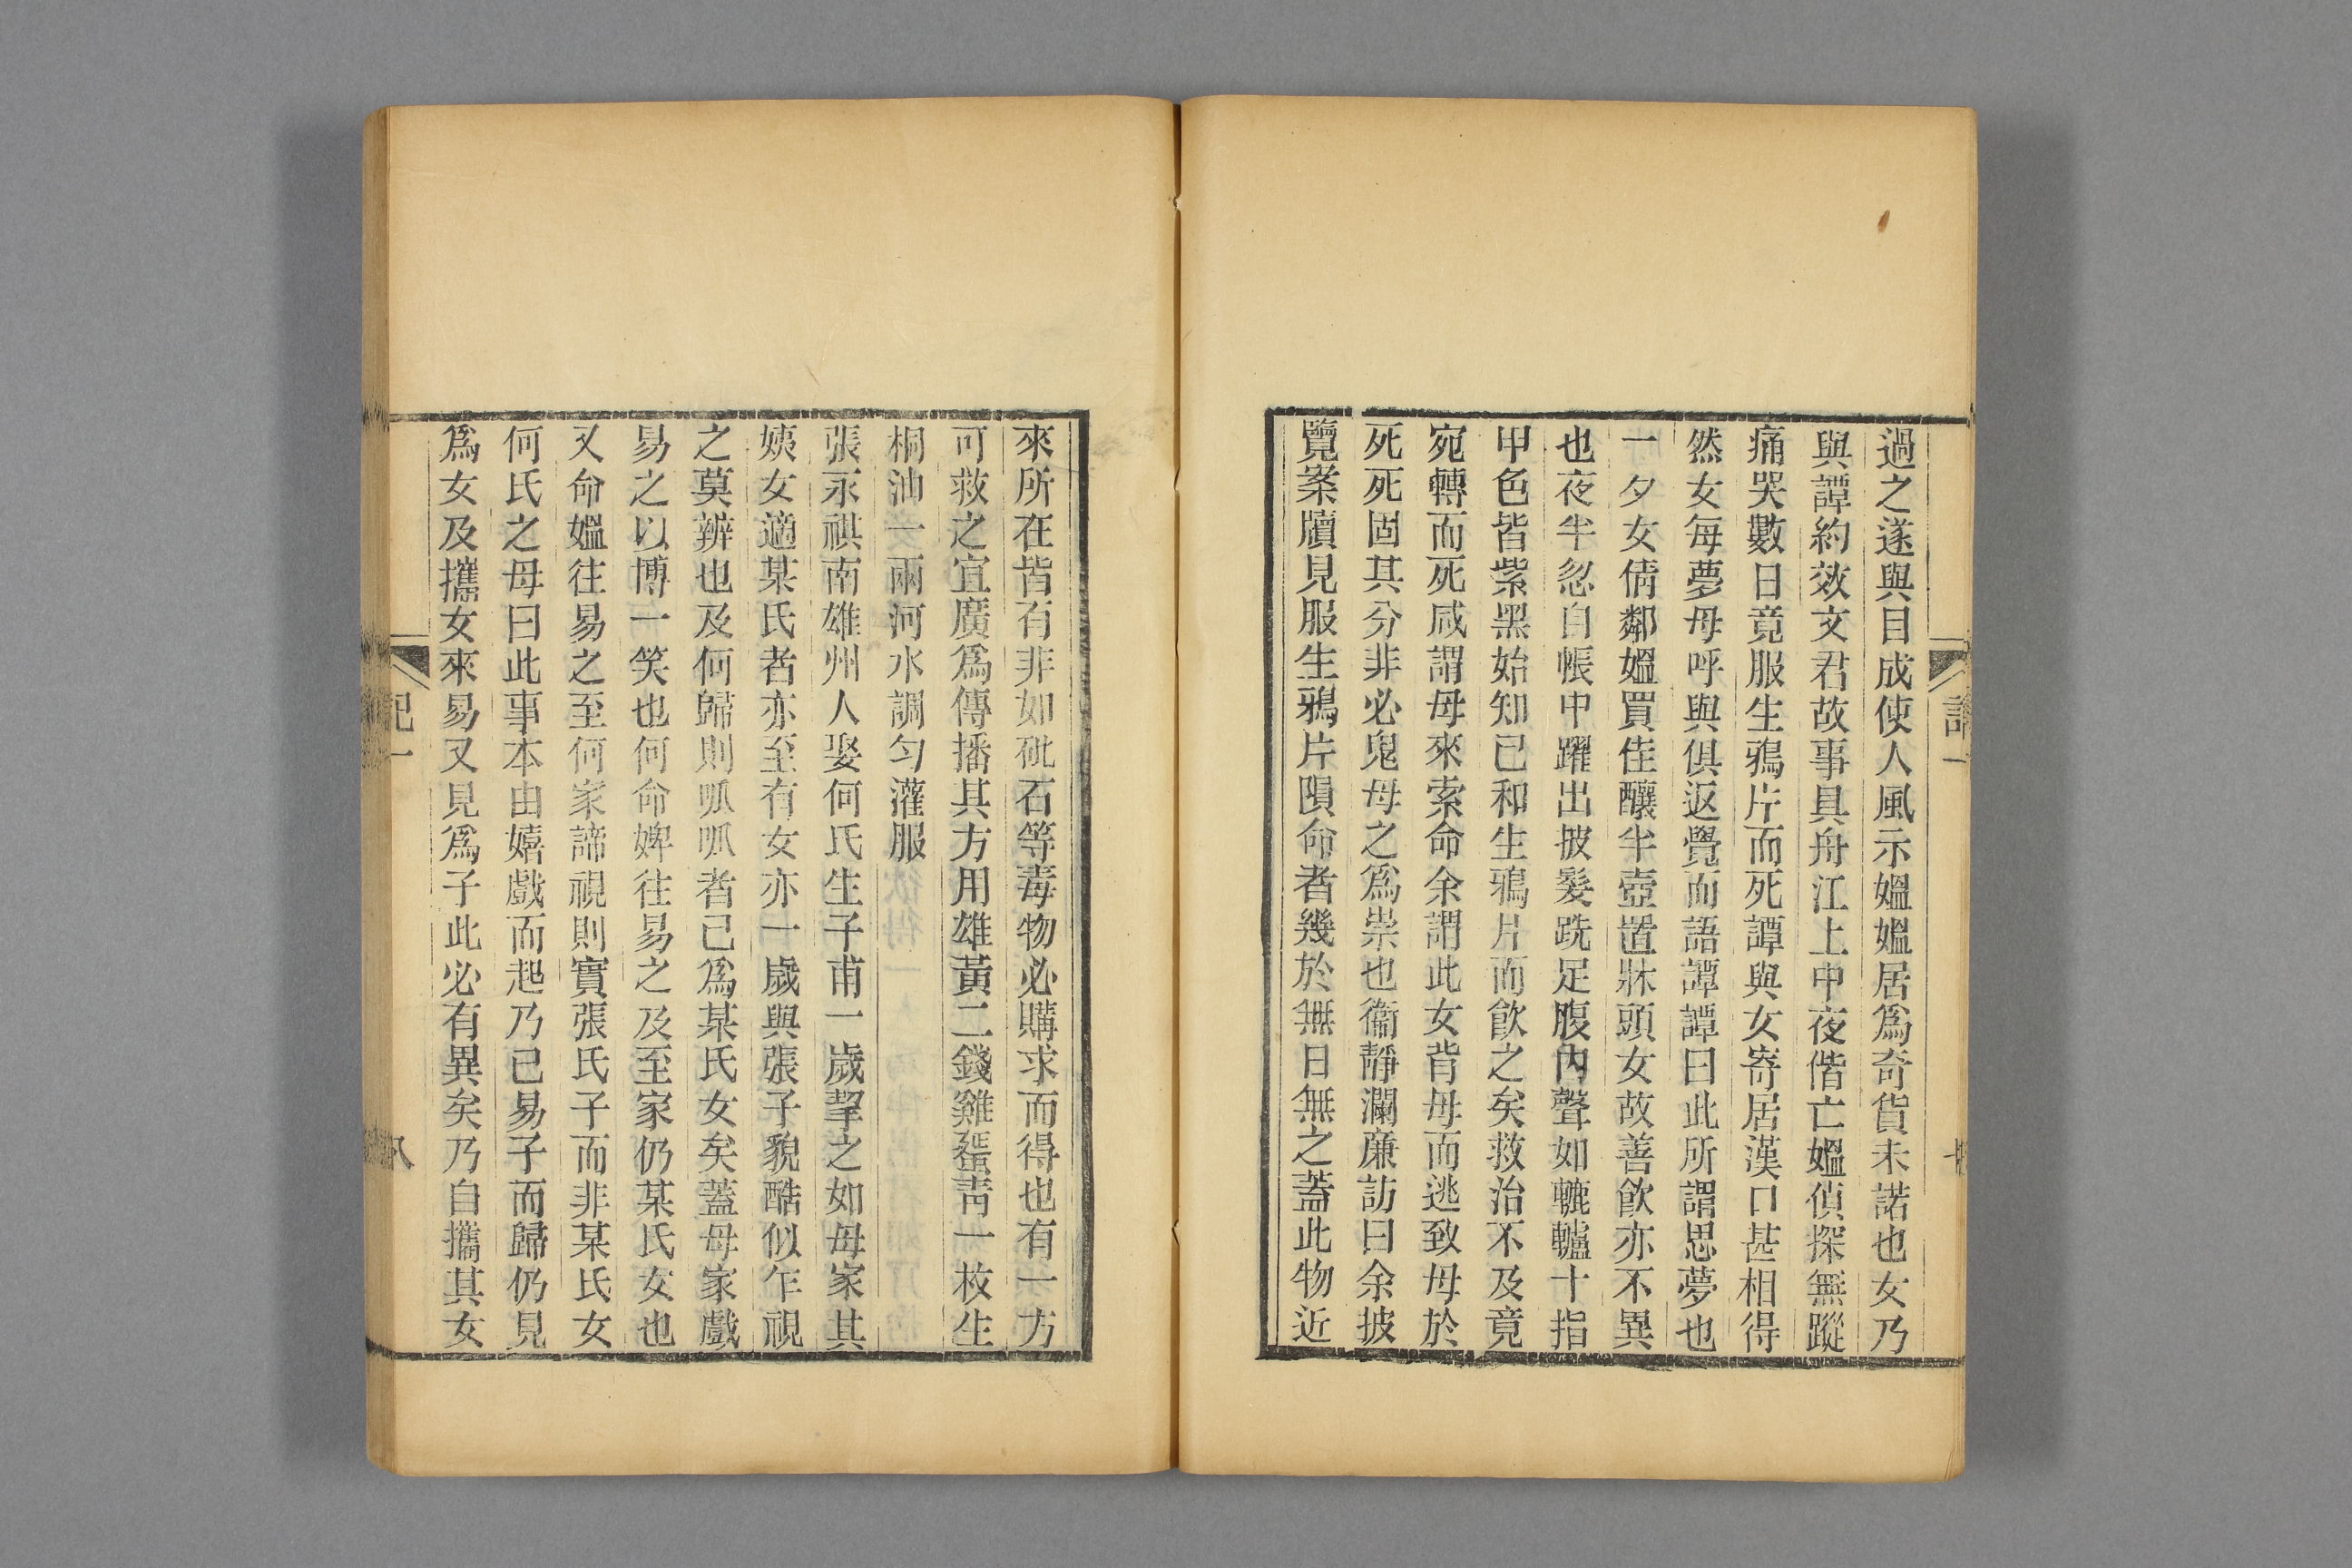 過之遂與目成使人風示媼媼居爲奇貨未諾也女乃
與譚約效文君故事具舟江上中夜偕亡媼偵探無蹤
痛哭數日竟服生鴉片而死譚與女寄居漢口甚相得
然女每夢母呼與俱返覺而語譚譚曰此所謂思夢也
一夕女倩鄰媼買佳釀半壺置牀頭女故善飮亦不異
也夜半忽自帳中躍出披髮跣足腹內聲如轆轤十指
甲色皆紫黑始知已和生鴉片而飮之矣救治不及竟
宛轉而死咸謂母來索命余謂此女背母而逃致母於
死死固其分非必鬼母之爲祟也衞靜瀾廉訪曰余披
覽案牘見服生鴉片隕命者幾於無日無之蓋此物近
來所在皆有非如砒石等毒物必購求而得也有一方
可救之宜廣爲傳播其方用雄黃二錢雞蛋靑一枚生
桐油一兩河水調勻灌服
張永祺南雄州人娶何氏生子甫一歲挈之如母家其
姨女適某氏者亦至有女亦一歲與張子貌酷似乍視
之莫辨也及何歸則呱呱者已爲某氏女矣蓋母家戲
易之以博一笑也何命婢往易之及至家仍某氏女也
又命媼往易之至何家諦視則實張氏子而非某氏女
何氏之母曰此事本由嬉戲而起乃已易子而歸仍見
爲女及攜女來易又見爲子此必有異矣乃自攜其女
記一
八